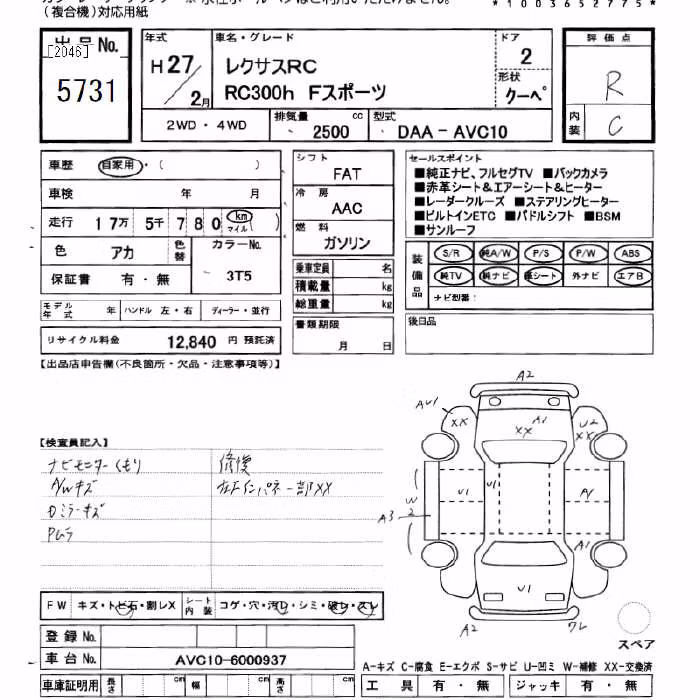 (複合機)対応用紙
*1003652775*
出品No.
[2046]
5731
年式
H27/2月
車名・グレード
レクサスRC
RC300h Fスポーツ
ドア
2
形状
クーペ
評価点
R
内装
C
2WD・4WD
排気量
2500 cc
型式
DAA-AVC10
車歴 自家用・( )
車検 年 月
走行 17万5千780 km マイル ( )
色 アカ 色替 カラーNo. 3T5
保証書 有・無
シフト
FAT
冷房
AAC
燃料
ガソリン
乗車定員 名
積載量 kg
総重量 kg
書類期限
月 日
セールスポイント
■純正ナビ、フルセグTV ■バックカメラ
■赤革シート&エアーシート&ヒーター
■レーダークルーズ ■ステアリングヒーター
■ビルトインETC ■パドルシフト ■BSM
■サンルーフ
装備品
S/R 純A/W P/S P/W ABS
純TV 純ナビ 革シート 外ナビ エアB
ナビ型番:
モデル年式 年 ハンドル 左・右 ディーラー・並行
後日品
リサイクル料金 12,840 円 預託済
【出品店申告欄(不良箇所・欠品・注意事項等)】
【検査員記入】
ナビモニターくもり
A/Wキズ
Dミラーキズ
PMラ
修復
左下インパネ一部XX
A2
AU1
XX
A1
XX
U2
XX
U1
U1
A3
W2
A1
U1
A2
ワレ
スペア
FW キズ・トビ石・割レX シート内装 コゲ・穴・汚レ・シミ・破レ・スレ
登録No.
車台No. AVC10-6000937
車庫証明用 長さ cm 幅 cm 高さ cm
A-キズ C-腐食 E-エクボ S-サビ U-凹ミ W-補修 XX-交換済
工具 有・無 ジャッキ 有・無